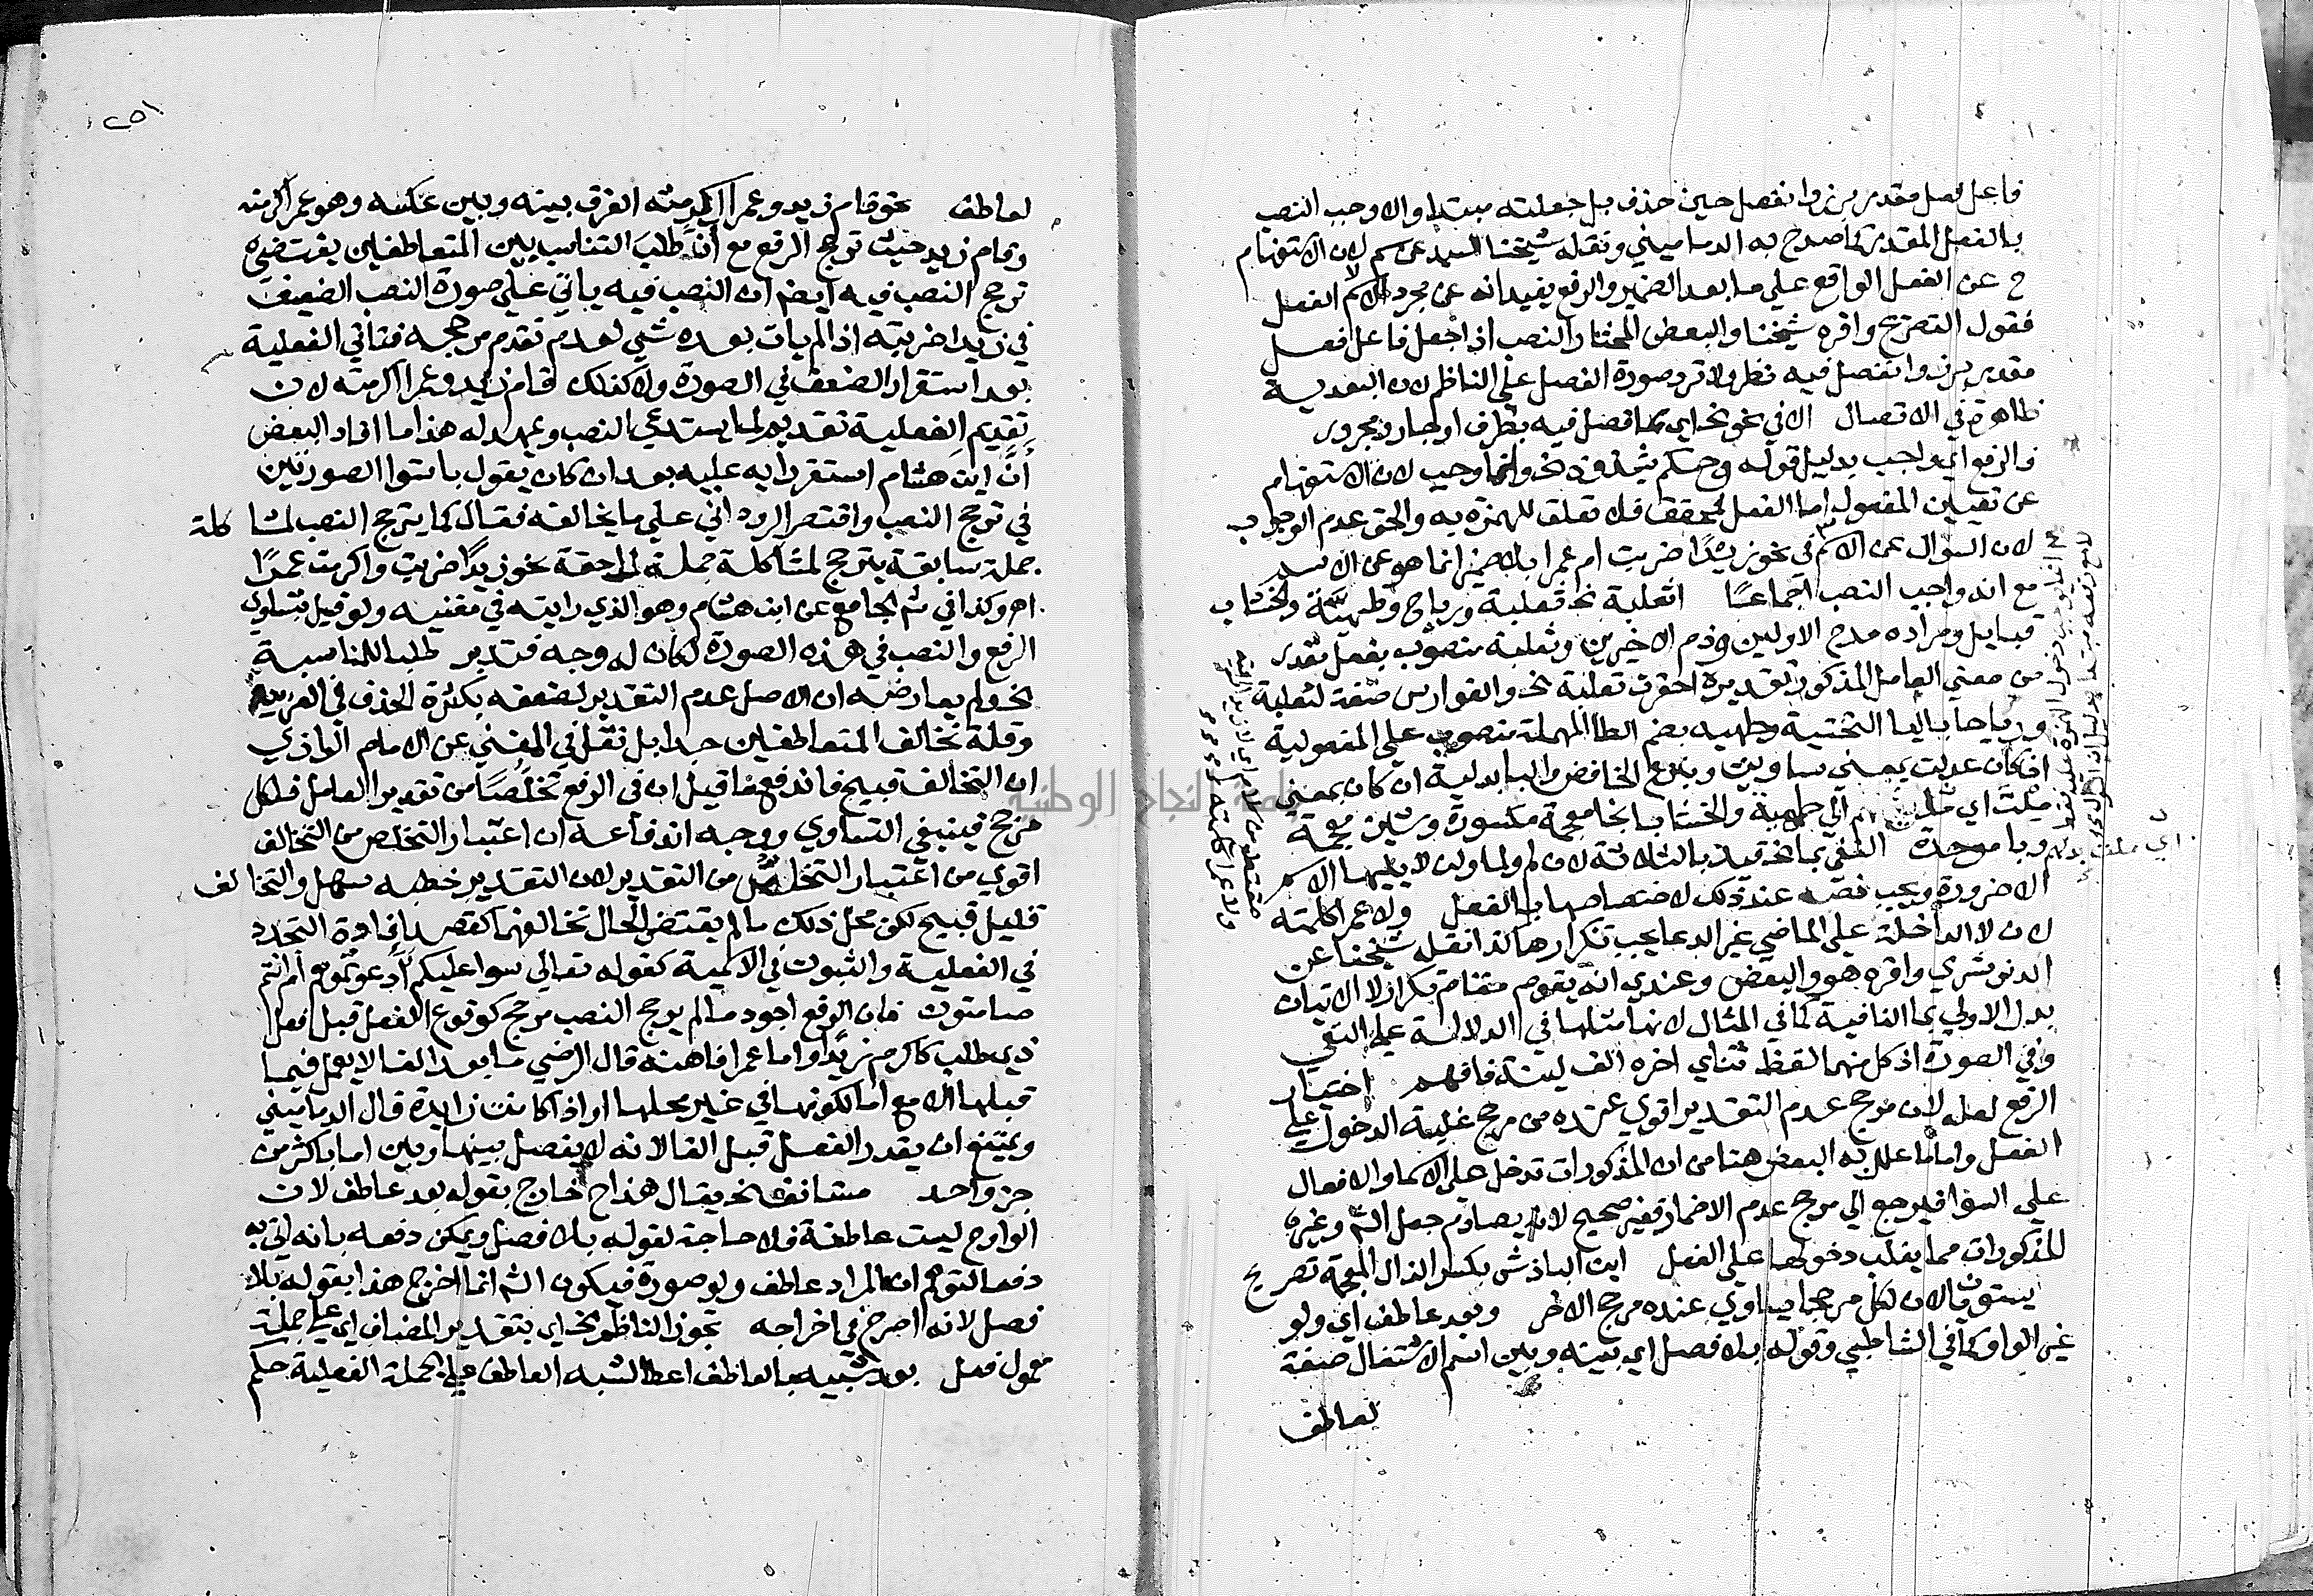 فاعل فعل مقدر برز وانفصل حين حذف بل جعلته مبتدا والا وجب النصب
بالفعل المقدر كما صرح به الدماميني ونقله شيخنا السيد عن سم لان الاستفهام
ح عن الفعل الواقع على ما بعد الضمير والرفع يفيد انه عن مجرد الاسم لا الفعل
فقول التصريح واقره شيخنا والبعض المختار النصب اذا جعل فاعل فعل
مقدر برز وانفصل فيه نظر ولا ترد صورة الفصل على الناظم لان البعدية
ظاهرة في الاتصال الا في نحو الخ اي مما فصل فيه بظرف او جار ومجرور
فالرفع اي واجب بدليل قوله وحكم بشذوذ الخ وانما وجب لان الاستفهام
عن تعيين المفعول اما الفعل فمحقق فلا تعلق للهمزة به والحق عدم الوجوب
لان السؤال عن الاسم في نحو ازيدا ضربت ام عمرا بلا ضمير انما هو عن الاسم
مع انه واجب النصب اجماعا اثعلبة الخ ثعلبة ورياح وطهية والخشاب
قبايل ومراده مدح الاولين وذم الاخيرين وثعلبة منصوب بفعل مقدر
من معني العامل المذكور تقديره احقرت ثعلبة الخ والفوارس صفة لثعلبة
ورياحا بالياء التحتية وطهيه بضم الطا المهملة منصوب على المفعولية
ان كان عدلت بمعني ساويت وبنزع الخافض والبا بدلية ان كان بمعني
ملت اي الي طهية والخشابا بخا معجمة مكسورة وشين معجمة
وبا موحدة النفي بما الخ قيد بالثلاثة لان لم ولما ولن لا يليها الاسم
الا ضرورة ويجب نصبه عند ذلك لاختصاصها بالفعل ولا عمرا كلمته
لان لا الداخلة على الماضي غير الدعا يجب تكرارها كذا نقله شيخنا عن
الدنوشري واقره هو والبعض وعندي انه يقوم مقام تكرار لا الاتيان
بدل الاولي بما النافية كما في المثال لانها مثلها في الدلالة على النفي
وفي الصورة اذ كل منهما لفظ ثناي اخره الف لينة فافهم اختيار
الرفع لعله لان مرجح عدم التقدير اقوي عنده من مرجح غلبة الدخول على
الفعل واما ما علل به البعض هنا من ان المذكورات تدخل على الاسما والافعال
على السوا فيرجع الي مرجح عدم الاضمار فغير صحيح لانه يصادم جعل الش وغيره
المذكورات مما يغلب دخولها على الفعل ابن الباذش بكسر الذال المعجمة تصريح
يستويان لان لكل مرجحا يساوي عنده مرجح الاخر وبعد عاطف اي ولو
غير الواو كما في الشاطبي وقوله بلا فصل اي بينه وبين اسم الاشتغال صفة
لعاطف
٢٥١
لعاطف نحو قام زيد وعمرا اكرمته الفرق بينه وبين عكسه وهو عمرا اكرمته
وقام زيد حيث ترجح الرفع مع ان طلب التناسب بين المتعاطفين يقتضي
ترجح النصب فيه ايضا ان النصب فيه ياتي على صورة النصب الضعيف
في زيدا ضربته اذا لم يات بعده شي لعدم تقدم مرجحه فتاتي الفعلية
بعد استقرار الضعف في الصورة ولا كذلك قام زيد وعمرا اكرمته لان
تقديم الفعلية تقديم لما يستدعي النصب ويمهد له هذا ما افاد البعض
ان ابن هشام استقر رايه عليه بعد ان كان يقول باستوا الصورتين
في ترجح النصب واقتصر الروداني على ما يخالفه فقال كما يترجح النصب لمشاكلة
جملة سابقة يترجح لمشاكلة جملة لاحقة نحو زيدا ضربت واكرمت عمرا
اه وكذا في شم الجامع عن ابن هشام وهو الذي رايته في مغنيه ولو قيل بتساوي
الرفع والنصب في هذه الصورة لكان له وجه فتدبر طلبا للمناسبة
الخ ولم يعارضه ان الاصل عدم التقدير لضعفه بكثرة الحذف في العربية
وقلة تخالف المتعاطفين جدا بل نقل في المغني عن الامام الرازي
ان التخالف قبيح فاندفع ما قيل ان في الرفع تخلصا من تقدير العامل فلكل
مرجح فينبغي التساوي ووجه اندفاعه ان اعتبار التخلص من التخالف
اقوي من اعتبار التخلص من التقدير لان التقدير خطبه سهل والتخالف
قليل قبيح لكن محل ذلك ما لم يقتض الحال تخالفهما كقصد افادة التجدد
في الفعلية والثبوت في الاسمية كقوله تعالي سوا عليكم ادعوتموهم ام انتم
صامتون فان الرفع اجود ما لم يرجح النصب مرجح كوقوع الفعل قبل فعل
ذي طلب كاكرم زيدا واما عمرا فاهنه قال الرضي ما بعد الفا لا يعمل فيما
قبلها الا مع اما لكونها في غير محلها او اذا كانت زايدة قال الدماميني
ويمتنع ان يقدر الفعل قبل الفا لانه لا يفصل بينها وبين اما باكثر من
جز واحد مستانف الخ يقال هذا ح خارج بقوله بعد عاطف لان
الواو ح ليست عاطفة فلا حاجة لقوله بلا فصل ويمكن دفعه بانه اتي به
دفعا لتوهم ان المراد عاطف ولو صورة فيكون الش انما اخرج هذا بقوله بلا
فصل لانه اصرح في اخراجه تجوز الناظم الخ اي بتقدير المضاف اي على جملة
معمول فعل بعد شبيه بالعاطف اعطا لشبه العاطف على الجملة الفعلية حكم